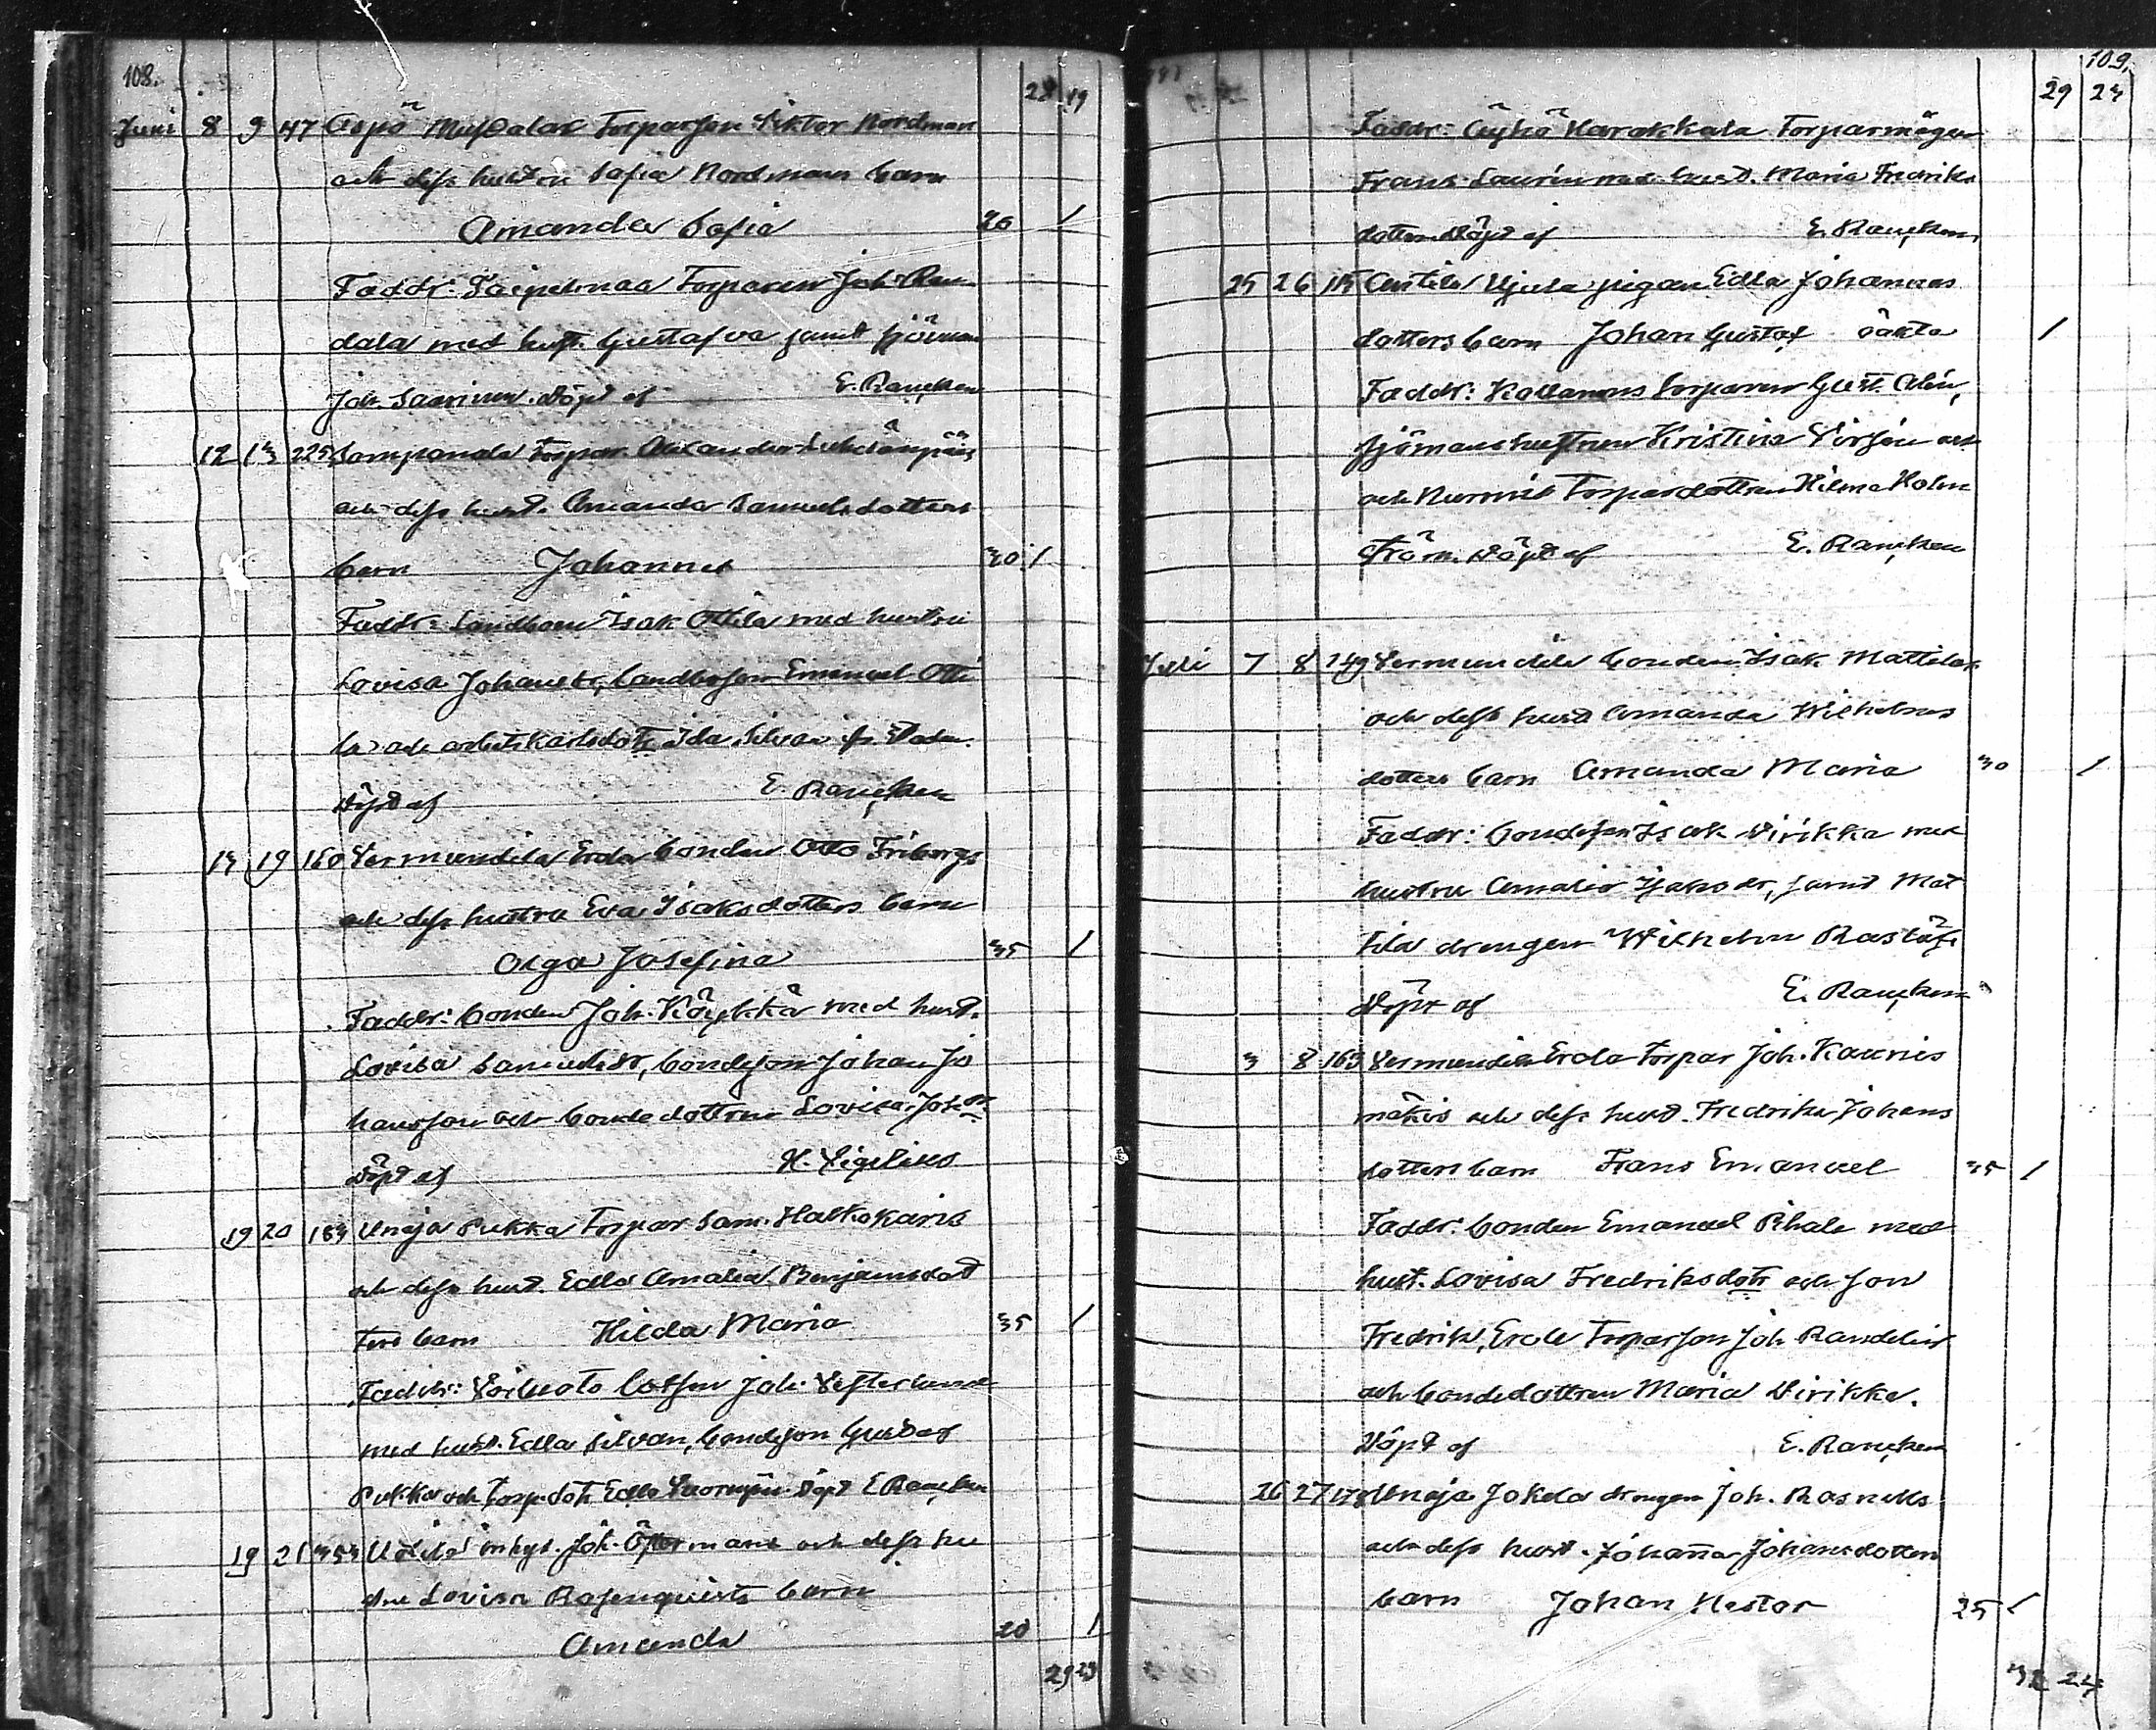 108.
28 19
Juni 8 9 47 Torparson Viktor Nordman
och dess hustru Sofia Nordmans barn
Amanda Sofia 26 1
Faddr: Torparen Joh.
dala med hust. Gustafva samt sjöman
Joh. Saarinen. Döpt af E. Rancken
12 13 225 Sampanala Torpar. Alexander
och dess hust. Amanda Samuelsdotters
barn Johannes 30 1
Faddr: Landbon Isak Ottila med hustru
Lovisa Johansdr, Landboson Emanuel Otti
la och arbetskarlsdotr Ida Silvan fr.
Döpt af E. Rancken
14 19 160 Vermundila Erola bonden Otto Fribergs
och dess hustru Eva Isaksdotters barn
Olga Josefina 35 1
Faddr: bonden Joh. Köykkä med hust.
Lovisa Samuelsdr, bondeson Johan Jo
hansson och bondedottren Lovisa
Döpt af
19 20 184 Unaja Pukka Torpar Sam. Halkokaris
och dess hust. Edla Amalia Benjamsdot
ters barn Hilda Maria 35 1
Faddr: Lotsen Joh. Vesterlund
med hust. Edla Silvan, bondeson Gustaf
Pukka och torp.dotr Edla Döpt E Rancken
19 21 353 inhys. Joh. Östermans och dess hu
stru Lovisa Rosenqvists barn
Amanda 20 1
29 23
109.
29 23
Faddr: Harakkala Torparmågen
Frans Laurén med hust. Maria Fredriks
dotter. Döpt af E. Rancken
25 26 115 Anttila pigan Edla Johannes
dotters barn Johan Gustaf oäkta 1
Faddr: torparen Gust. Alén,
sjömanshustrun Kristina och
och Nurmis Torparedottren Hilma Holm
ström. Döpt af E. Rancken
Juli 7 8 149 Vermundila bonden Isak Mattilas
och dess hust Amanda Wilhelms
dotters barn Amanda Maria 30 1
Faddr: bondeson Isak Dirikka med
hustru Amalia samt Mat
tila drengen Wilhelm
Döpt af E. Rancken
3 8 163 Vermundila Erola Torpar Joh. Kaunis
mäkis och dess hust. Fredrika Johans
dotters barn Frans Emanuel 35 1
Faddr: bonden Emanuel Pihala med
hust. Lovisa Fredriksdotr och son
Fredrik, Erola Torparson Joh Randelin
och bondedottren Maria Dirikka.
Döpt af E. Rancken
26 27 178 Unaja Jokela drengen Joh.
och dess hust. Johanna Johansdotters
barn Johan Nestor 25 1
32 24